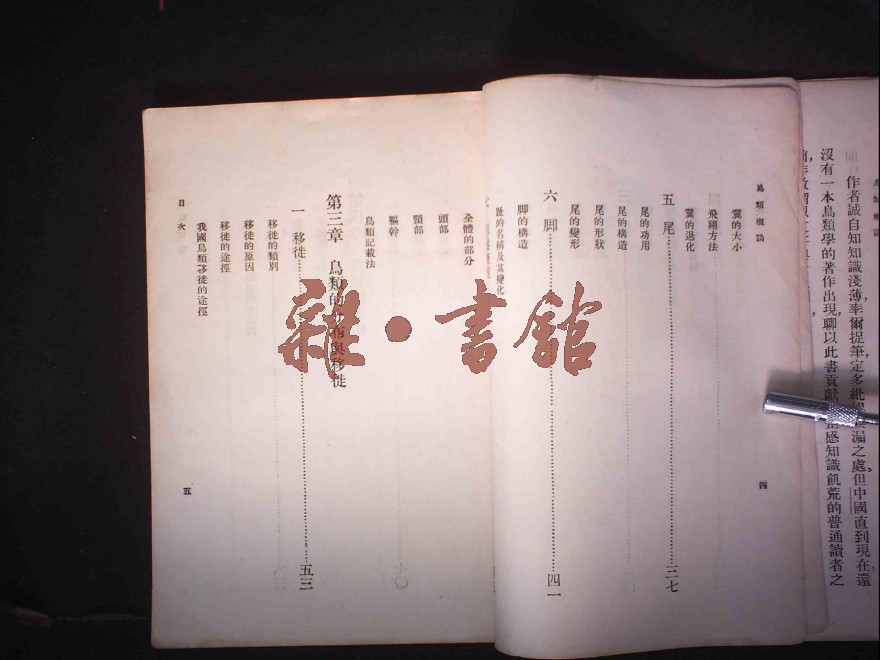 作者誠自知知識淺薄,率爾捉筆定多紕漏之處。但中國直到現在,還
沒有一本鳥類學的著作出現,聊以此書貢獻感知識飢荒的普通讀者之
鳥類概論
四
翼的大小
飛翔方法
翼的退化
五 尾 三七
尾的功用
尾的構造
尾的形狀
尾的變形
六 脚 四一
脚的構造
趾的名稱及其變化
全體的部分
頭部
頸部
軀幹
鳥類記載法
第三章 鳥類的分布與移徙
一 移徙 五三
移徙的類別
移徙的原因
移徙的途徑
我國鳥類移徙的途徑
目次
五
雜·書館